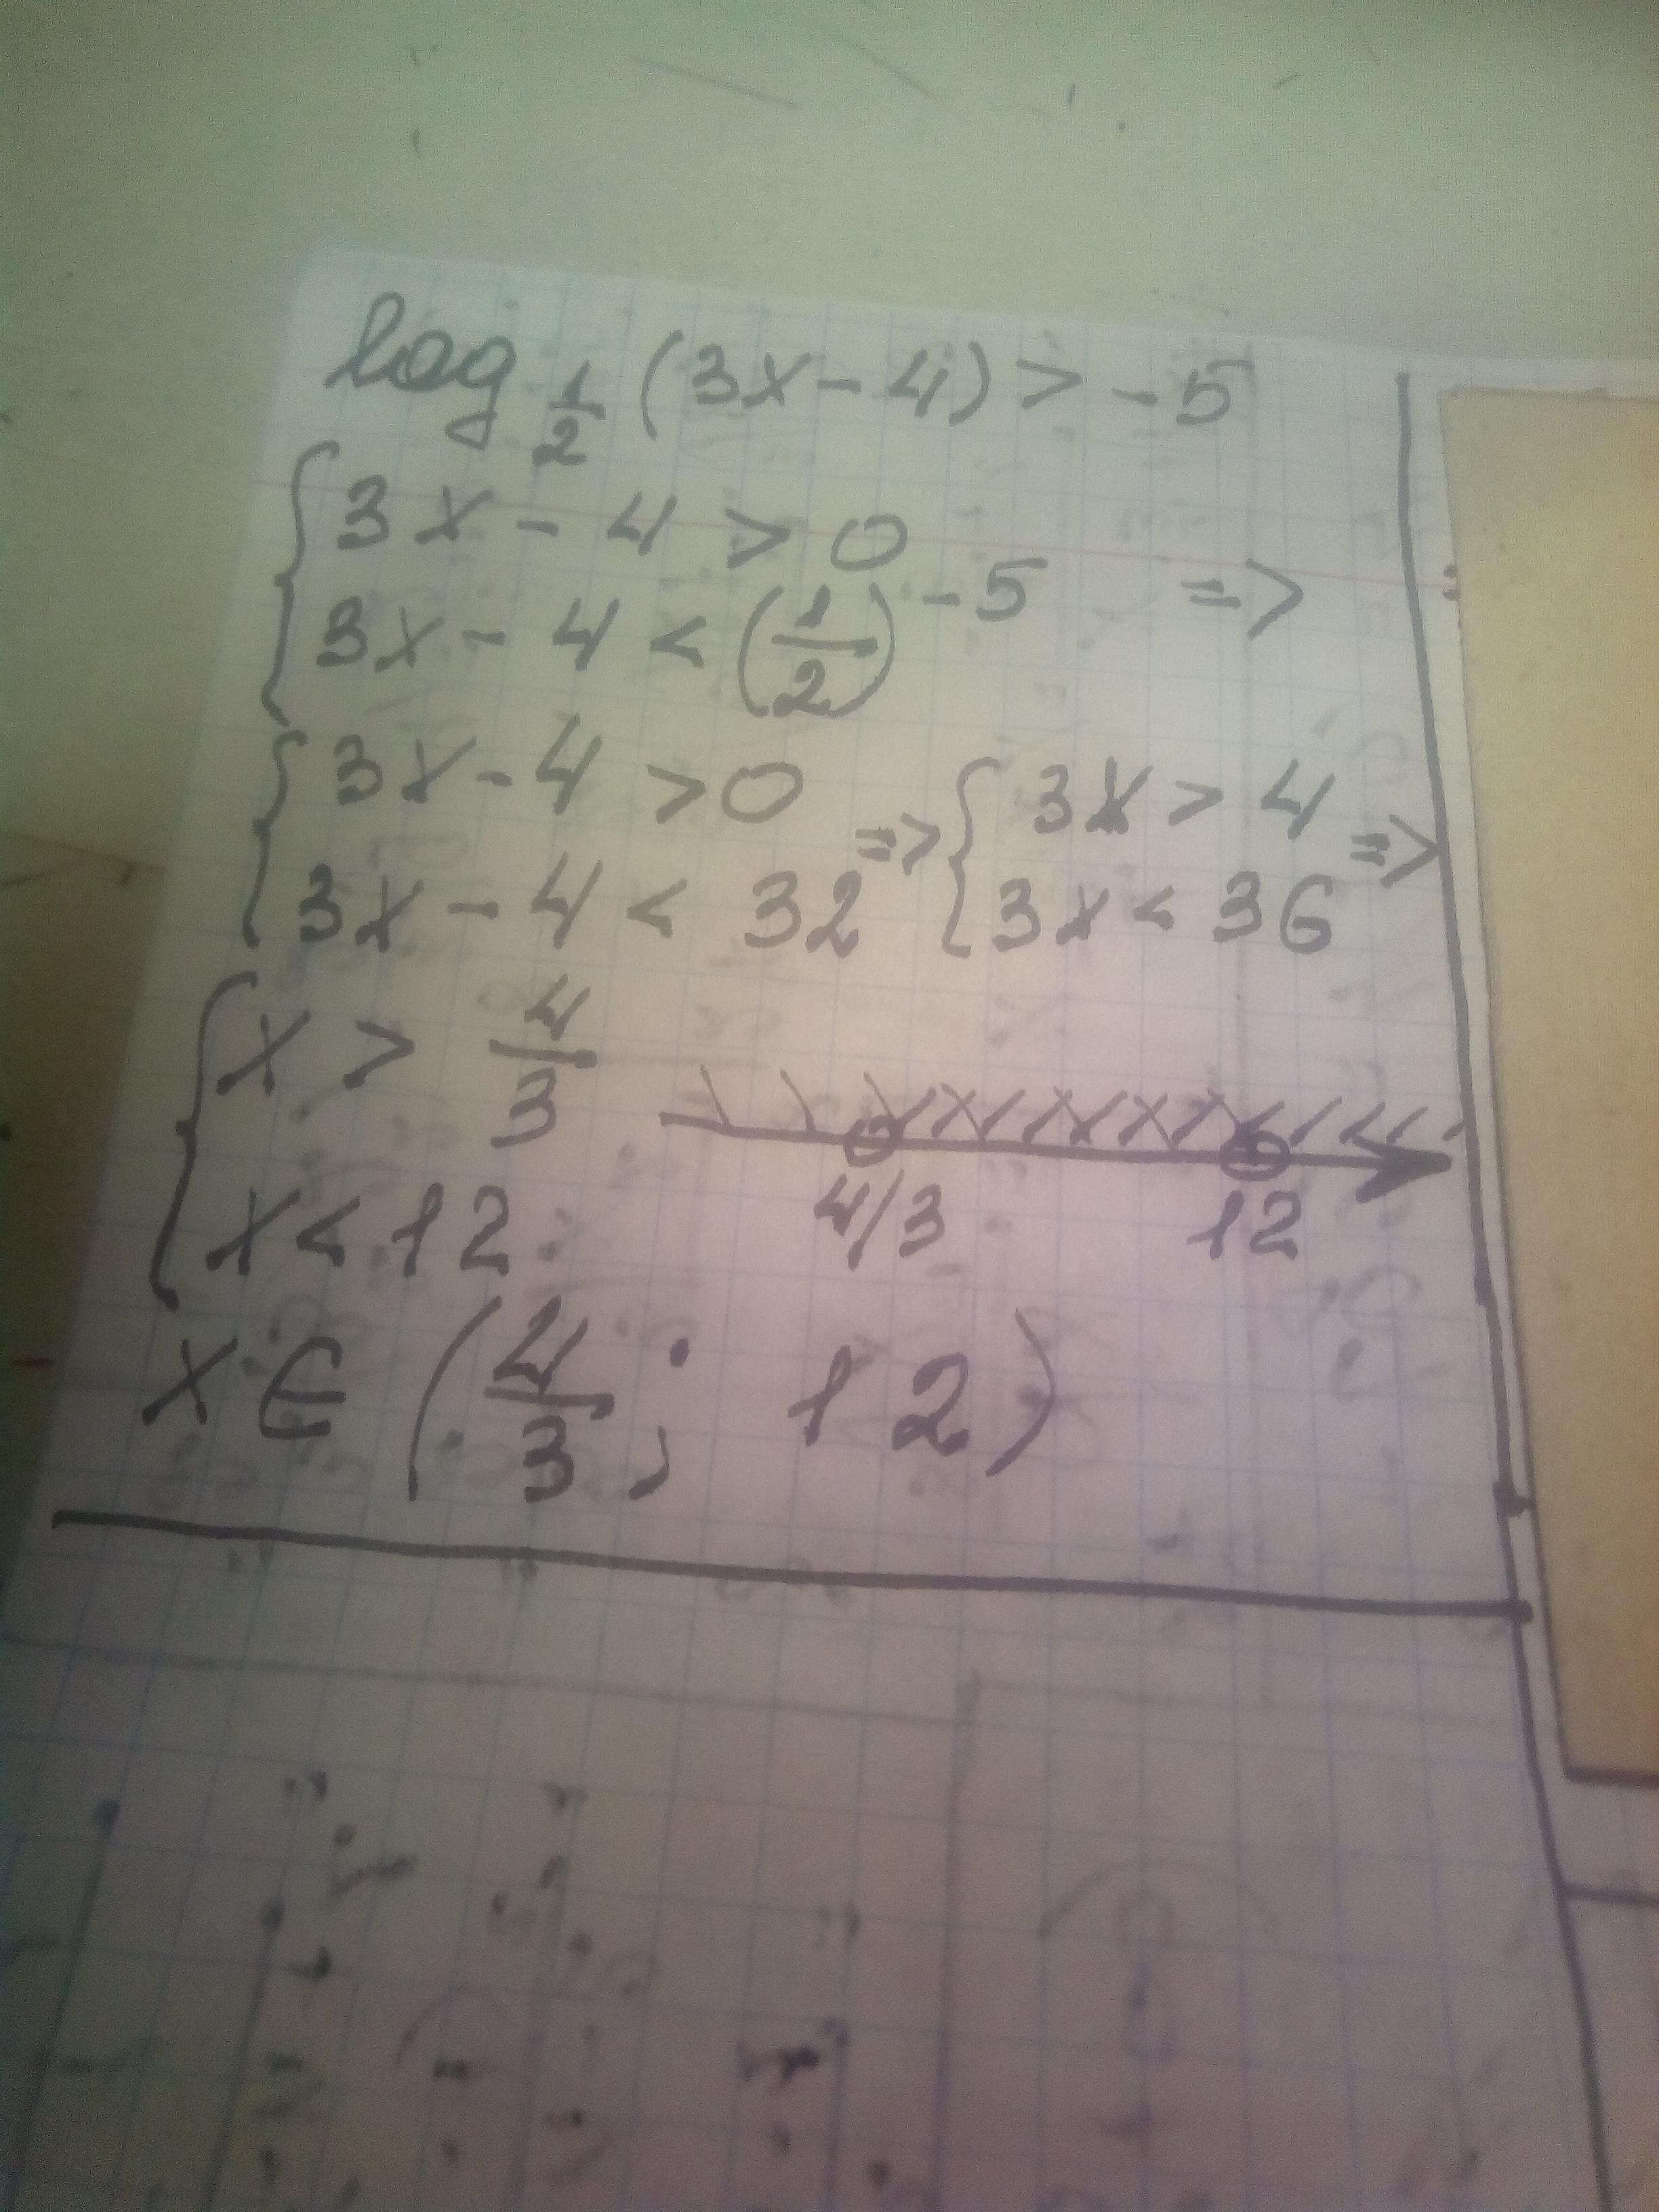 log 1/2 (3x - 4) > -5
{ 3x - 4 > 0
3x - 4 < (1/2)^-5 =>
{ 3x - 4 > 0 => { 3x > 4 =>
3x - 4 < 32 3x < 36
{ x > 4/3
x < 12
4/3 12
x ∈ (4/3; 12)